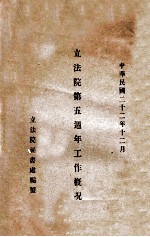 中華民國二十二年十二月
立法院第五週年工作概況
立法院秘書處編製